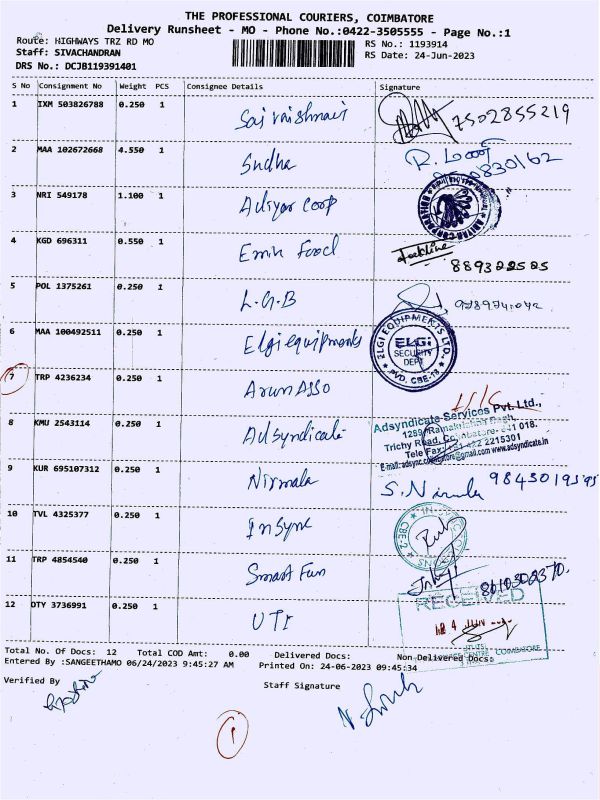 THE PROFESSIONAL COURIERS, COIMBATORE
Delivery Runsheet - MO - Phone No.:0422-3505555 - Page No.:1
Route: HIGHWAYS TRZ RD MO
RS No.: 1193914
Staff: SIVACHANDRAN
RS Date: 24-Jun-2023
DRS No.: DCJB119391401
S No Consignment No Weight PCS Consignee Details Signature
1 IXM 503826788 0.250 1 Sai vaishnavi 7502855219
2 MAA 102672668 4.550 1 Sudha R. மணி
3 NRI 549178 1.100 1 Adiyar Coop
4 KGD 696311 0.550 1 Emin Food
5 POL 1375261 0.250 1 L.G.B
6 MAA 100492511 0.250 1 Elgi equipments ELGI EQUIPMENTS LTD. ELGi SECURITY DEPT PVD. CBE-15
7 TRP 4236234 0.250 1 Arun Asso
8 KMU 2543114 0.250 1 Adsyndicate
Adsyndicate Services Pvt. Ltd.,
Trichy Road, Coimbatore- 641 018.
Tele Fax: 2215301
9 KUR 695107312 0.250 1 Nirmala S. Nirmala
10 TVL 4325377 0.250 1 InSync
11 TRP 4854540 0.250 1 Smart Fun
12 DTY 3736991 0.250 1 UTI RECEIVED
COIMBATORE
Total No. Of Docs: 12 Total COD Amt: 0.00 Delivered Docs: Non-Delivered Docs:
Entered By :SANGEETHAMO 06/24/2023 9:45:27 AM Printed On: 24-06-2023 09:45:34
Verified By Staff Signature
1